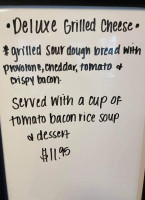 • Deluxe Grilled Cheese •
* grilled sour dough bread with
provolone, cheddar, tomato +
crispy bacon.
Served with a cup of
tomato bacon rice soup
+ dessert
$11.95